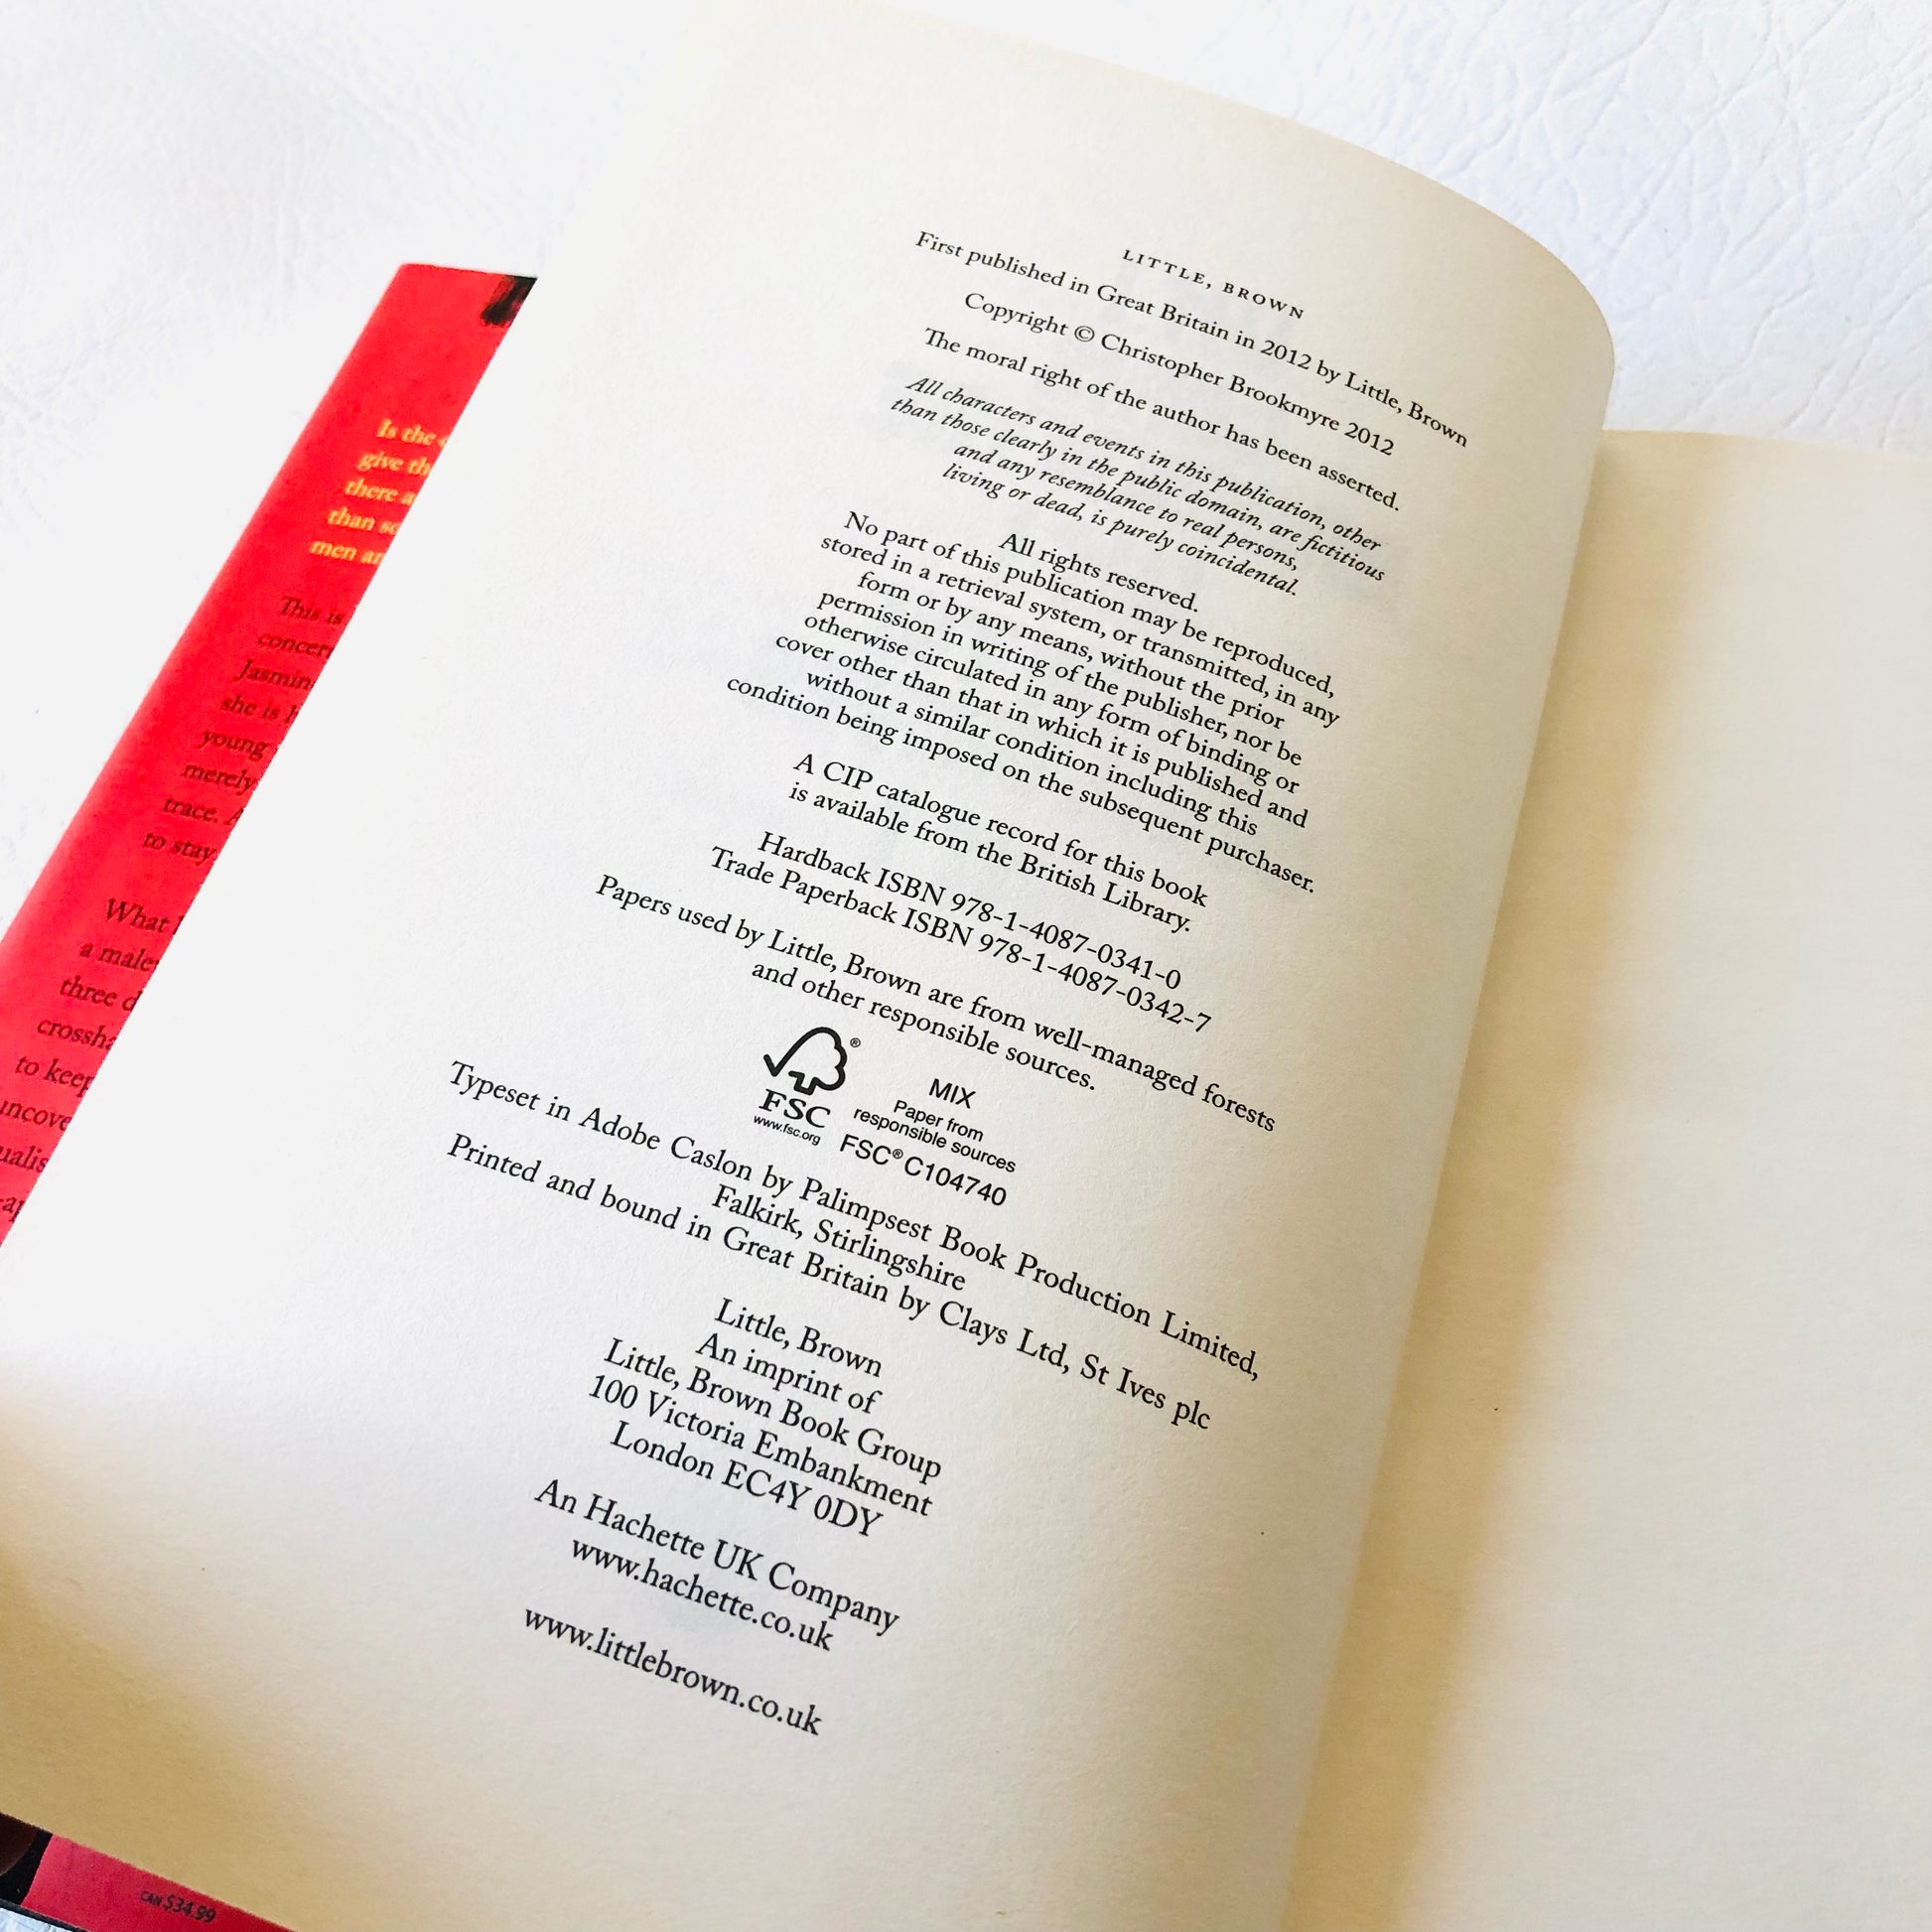 Is the
give th
there a
than so
men an
This is
concern
Jasmin
she is h
young
merely
trace. A
to stay
What
a male
three d
crossha
to keep
uncove
ualis
-ap
CAN $34.99
LITTLE, BROWN
First published in Great Britain in 2012 by Little, Brown
Copyright © Christopher Brookmyre 2012
The moral right of the author has been asserted.
All characters and events in this publication, other
than those clearly in the public domain, are fictitious
and any resemblance to real persons,
living or dead, is purely coincidental.
All rights reserved.
No part of this publication may be reproduced,
stored in a retrieval system, or transmitted, in any
form or by any means, without the prior
permission in writing of the publisher, nor be
otherwise circulated in any form of binding or
cover other than that in which it is published and
without a similar condition including this
condition being imposed on the subsequent purchaser.
A CIP catalogue record for this book
is available from the British Library.
Hardback ISBN 978-1-4087-0341-0
Trade Paperback ISBN 978-1-4087-0342-7
Papers used by Little, Brown are from well-managed forests
and other responsible sources.
®
FSC
www.fsc.org
MIX
Paper from
responsible sources
FSC® C104740
Typeset in Adobe Caslon by Palimpsest Book Production Limited,
Falkirk, Stirlingshire
Printed and bound in Great Britain by Clays Ltd, St Ives plc
Little, Brown
An imprint of
Little, Brown Book Group
100 Victoria Embankment
London EC4Y 0DY
An Hachette UK Company
www.hachette.co.uk
www.littlebrown.co.uk